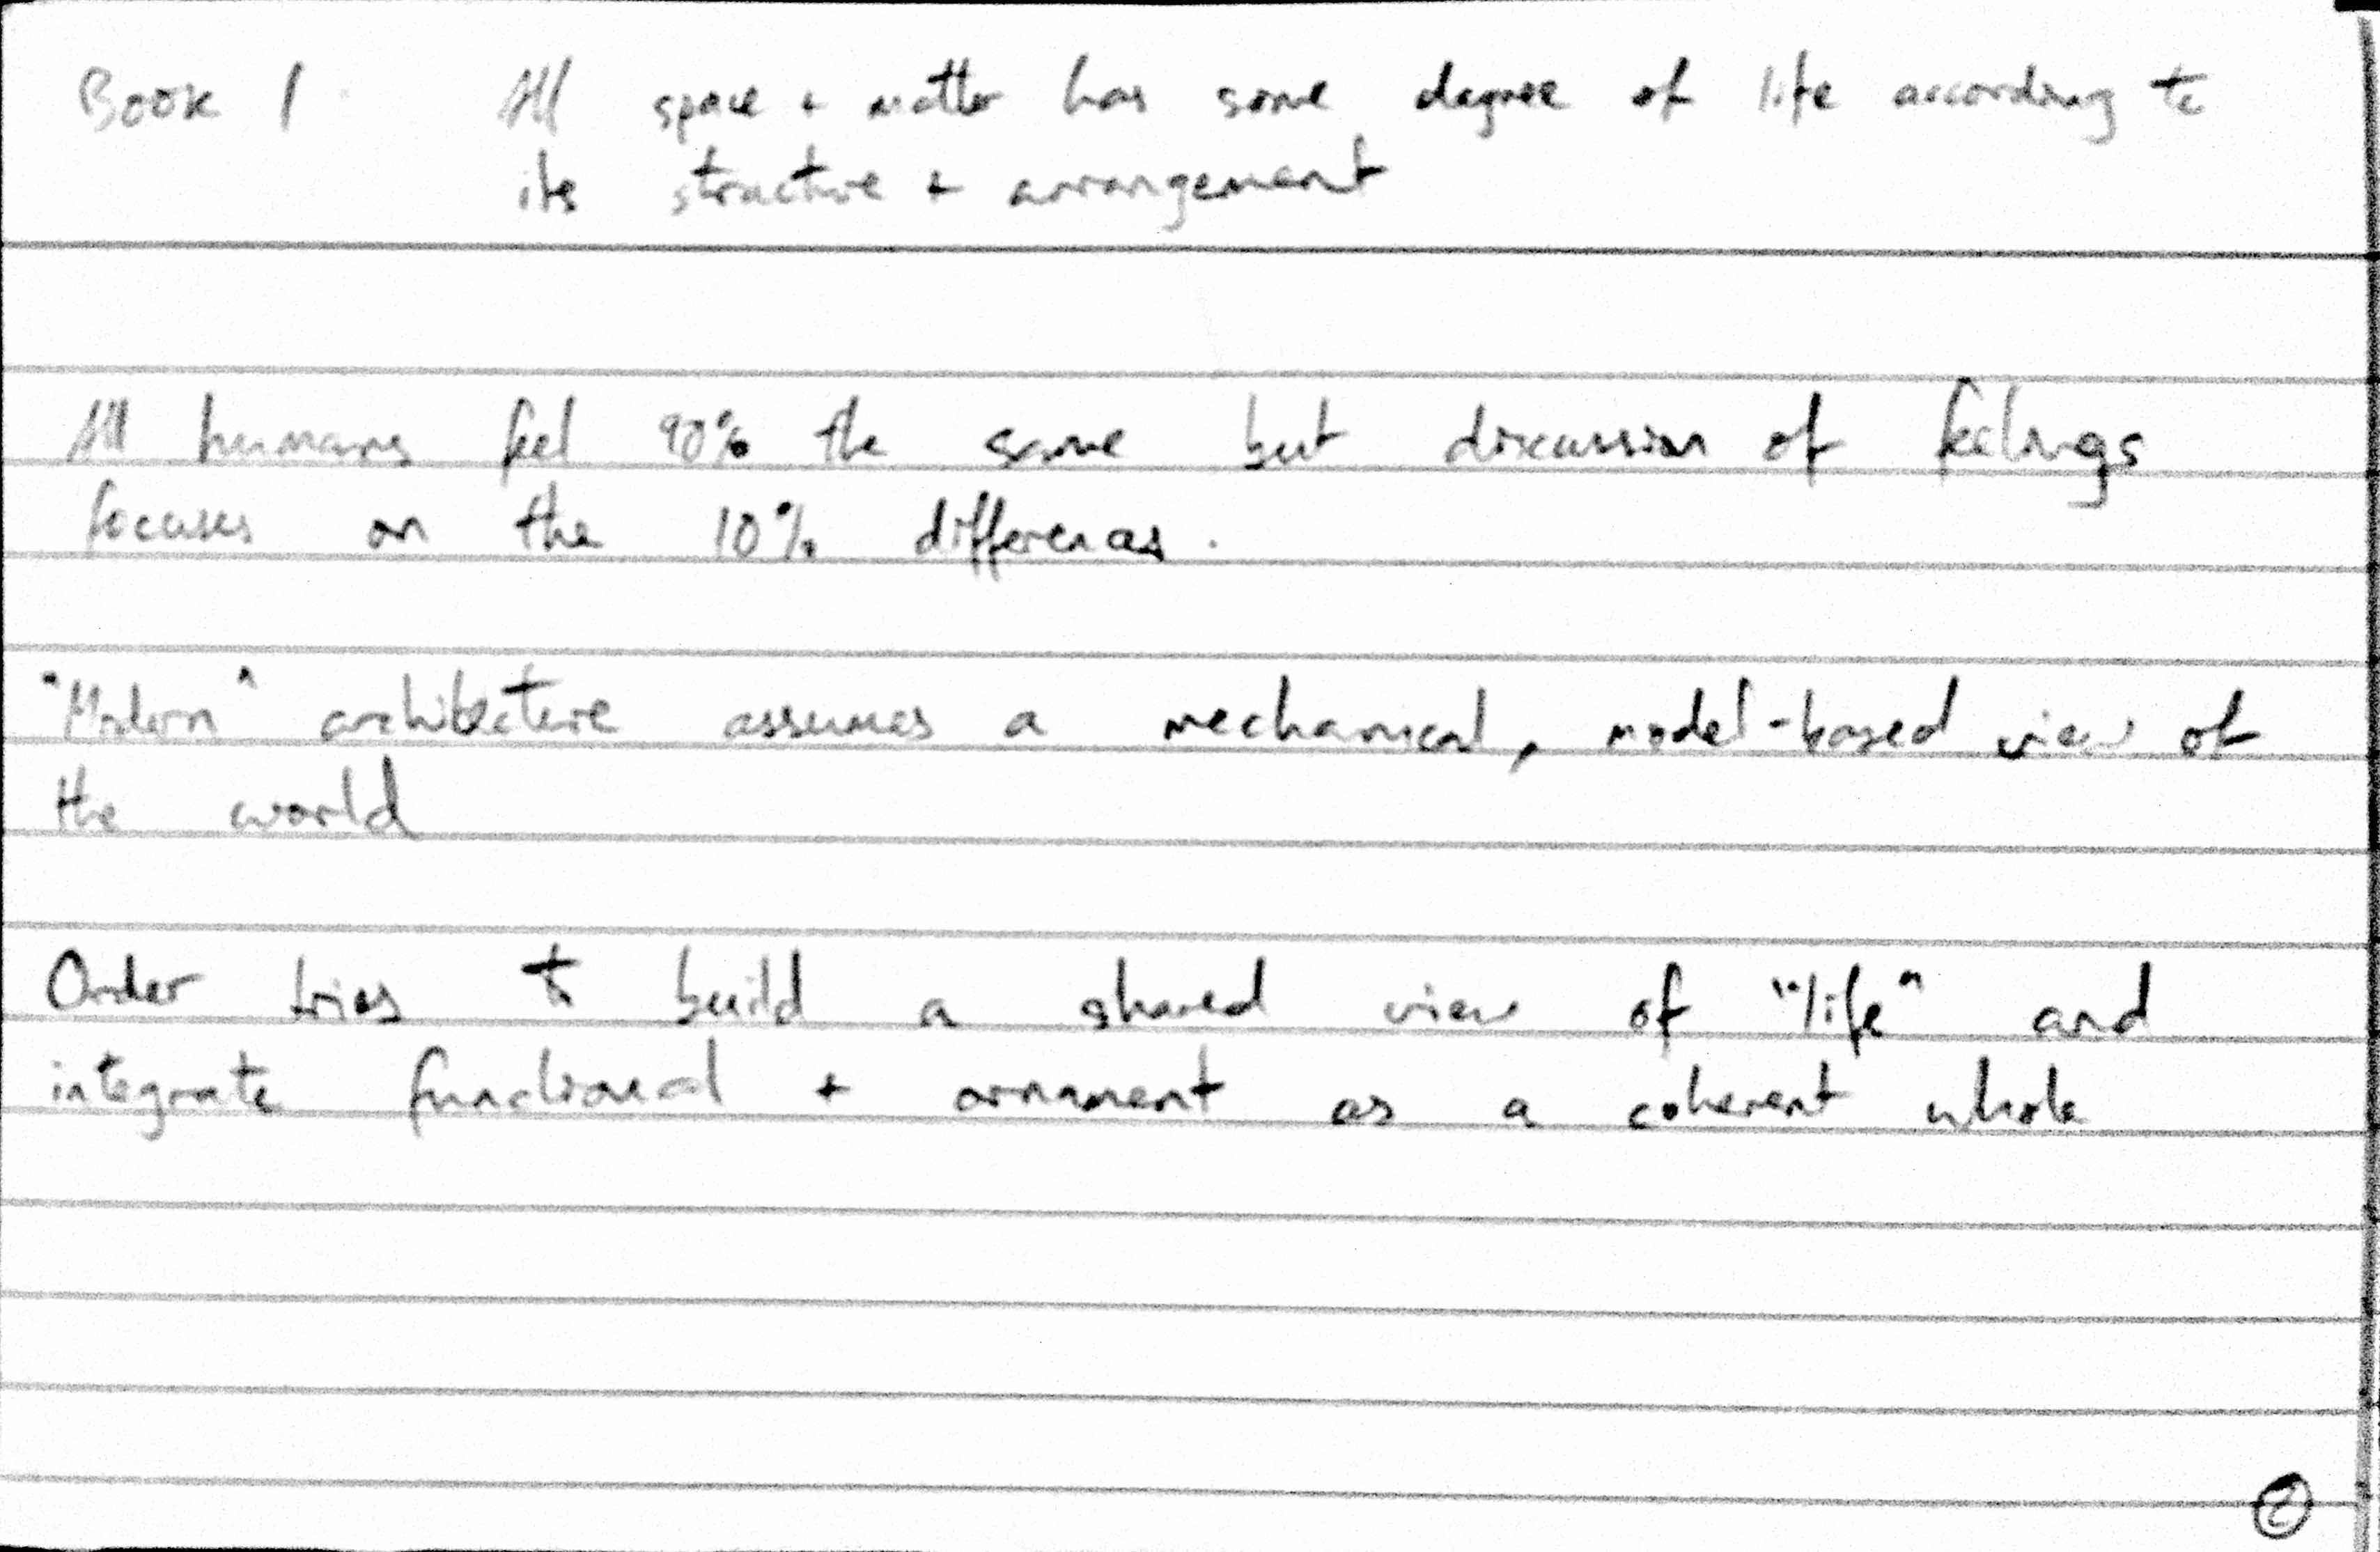 Book 1 All space + matter has some degree of life according to
its structure + arrangement
All humans feel 90% the same but discussion of feelings
focuses on the 10% differences.
"Modern" architecture assumes a mechanical, model-based view of
the world
Order tries to build a shared view of "life" and
integrate functional + ornament as a coherent whole
2